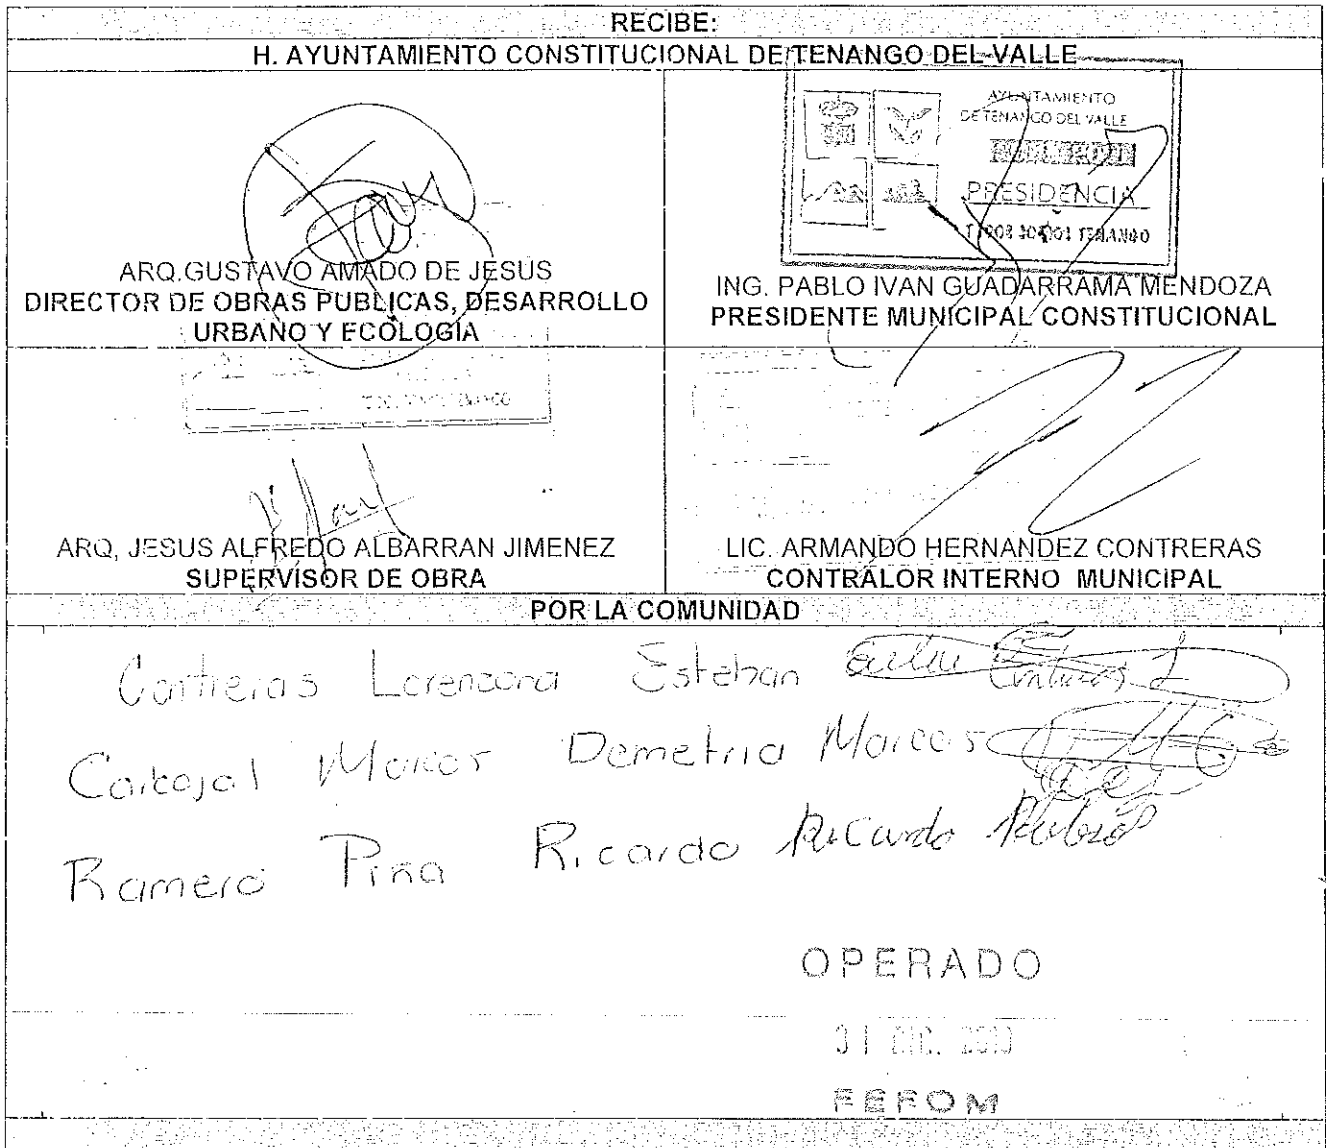 RECIBE:
H. AYUNTAMIENTO CONSTITUCIONAL DE TENANGO DEL VALLE
ARQ.GUSTAVO AMADO DE JESUS
DIRECTOR DE OBRAS PUBLICAS, DESARROLLO
URBANO Y ECOLOGÍA
AYUNTAMIENTO
DE TENANGO DEL VALLE
PRESIDENCIA
TENANGO
ING. PABLO IVAN GUADARRAMA MENDOZA
PRESIDENTE MUNICIPAL CONSTITUCIONAL
ARQ, JESUS ALFREDO ALBARRAN JIMENEZ
SUPERVISOR DE OBRA
LIC. ARMANDO HERNANDEZ CONTRERAS
CONTRALOR INTERNO MUNICIPAL
POR LA COMUNIDAD
Contreras Lorenzana Esteban
Carbajal Marcos Demetria Marcos
Ramero Piña Ricardo Ricardo
OPERADO
31 DIC.
FEFOM